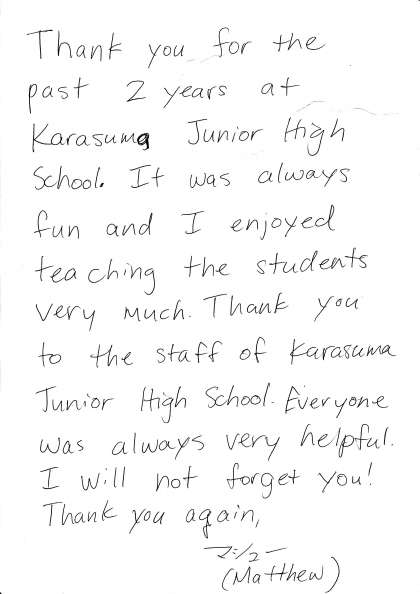 Thank you for the
past 2 years at
Karasuma Junior High
School. It was always
fun and I enjoyed
teaching the students
very much. Thank you
to the staff of Karasuma
Junior High School. Everyone
was always very helpful.
I will not forget you!
Thank you again,
マシュー
(Matthew)